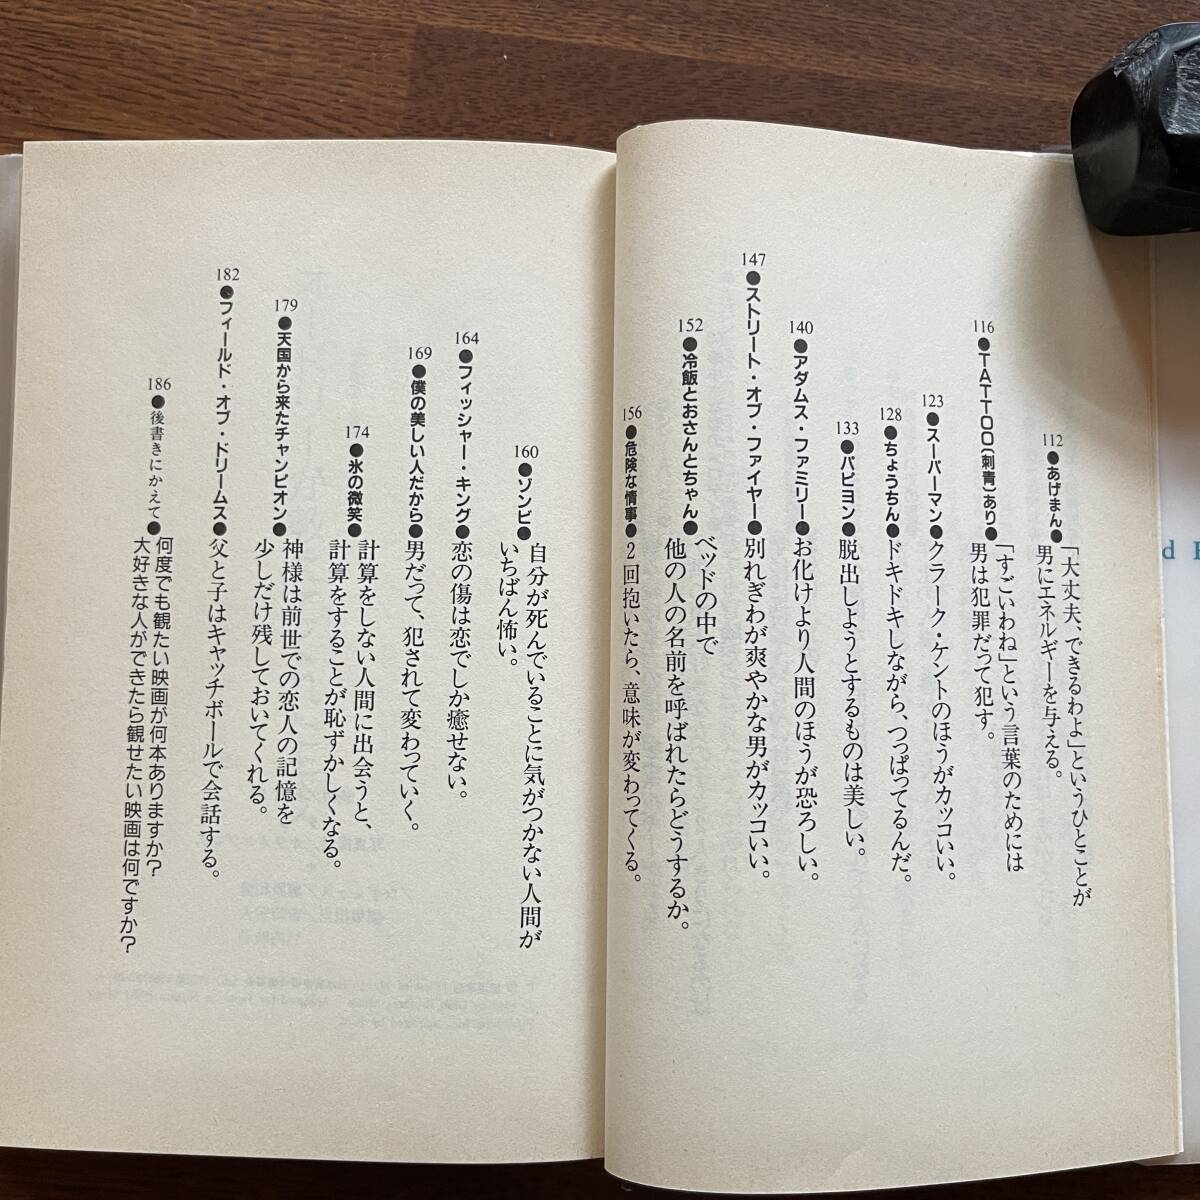 112●あげまん●「大丈夫、できるわよ」というひとことが
男にエネルギーを与える。
116●TATTOO〔刺青〕あり●「すごいわね」という言葉のためには
男は犯罪だって犯す。
123●スーパーマン●クラーク・ケントのほうがカッコいい。
128●ちょうちん●ドキドキしながら、つっぱってるんだ。
133●パピヨン●脱出しようとするものは美しい。
140●アダムス・ファミリー●お化けより人間のほうが恐ろしい。
147●ストリート・オブ・ファイヤー●別れぎわが爽やかな男がカッコいい。
152●冷飯とおさんとちゃん●ベッドの中で
他の人の名前を呼ばれたらどうするか。
156●危険な情事●2回抱いたら、意味が変わってくる。
160●ゾンビ●自分が死んでいることに気がつかない人間が
いちばん怖い。
164●フィッシャー・キング●恋の傷は恋でしか癒せない。
169●僕の美しい人だから●男だって、犯されて変わっていく。
174●氷の微笑●計算をしない人間に出会うと、
計算をすることが恥ずかしくなる。
179●天国から来たチャンピオン●神様は前世での恋人の記憶を
少しだけ残しておいてくれる。
182●フィールド・オブ・ドリームス●父と子はキャッチボールで会話する。
186●後書きにかえて●何度でも観たい映画が何本ありますか?
大好きな人ができたら観せたい映画は何ですか?